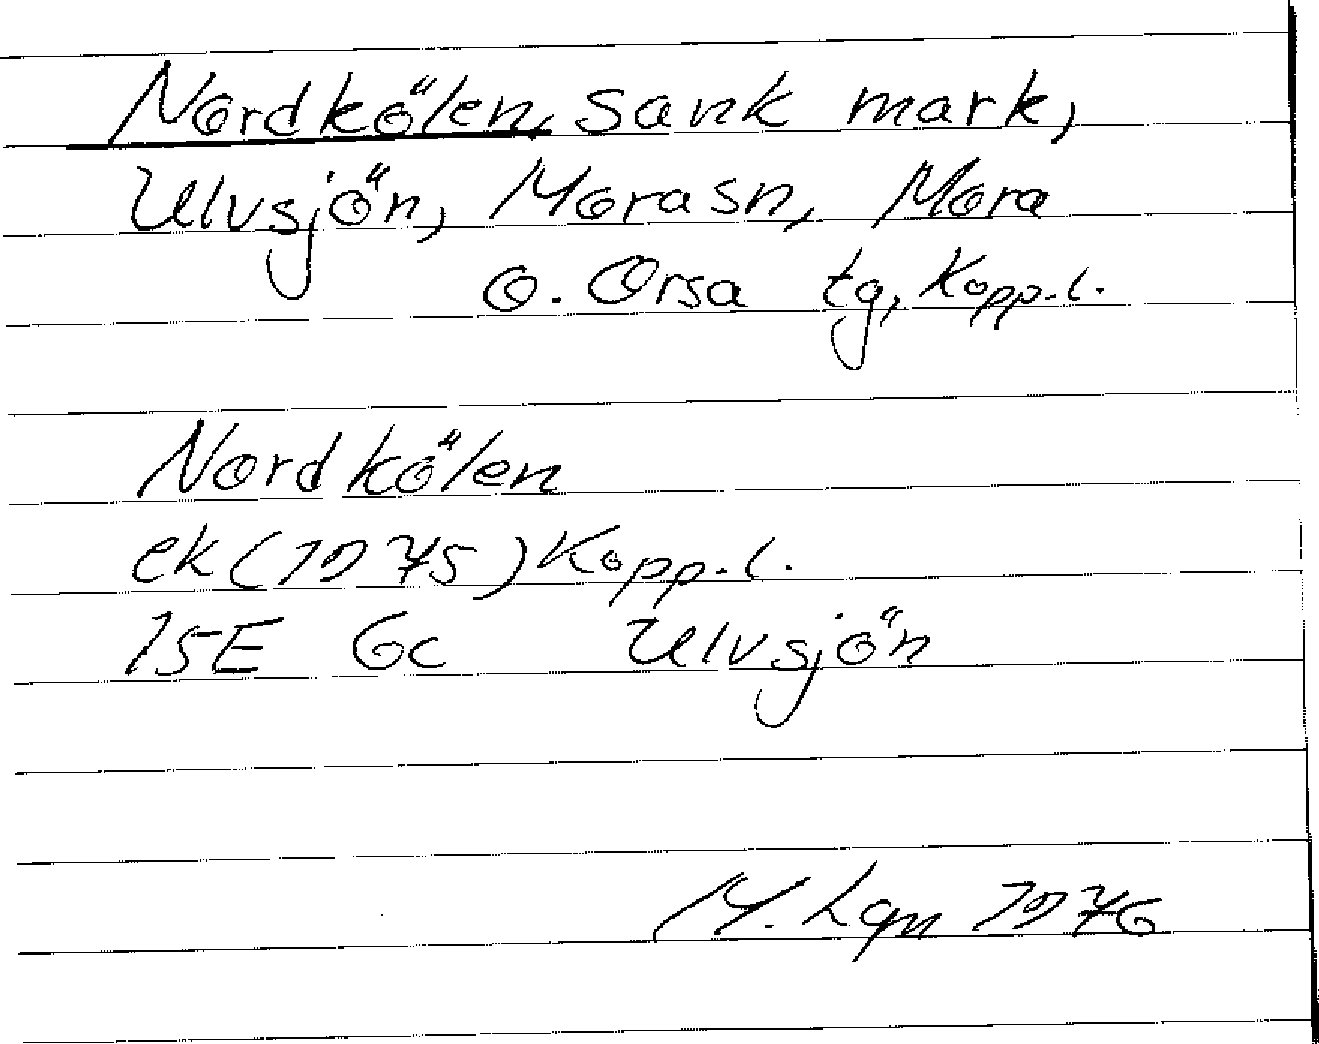 Nordkölen, sank mark,
Ulvsjön, Morasn, Mora
o. Orsa tg, Kopp.l.
Nordkölen
ek (1975) Kopp.l.
15E 6c Ulvsjön
M. Lgn 1976